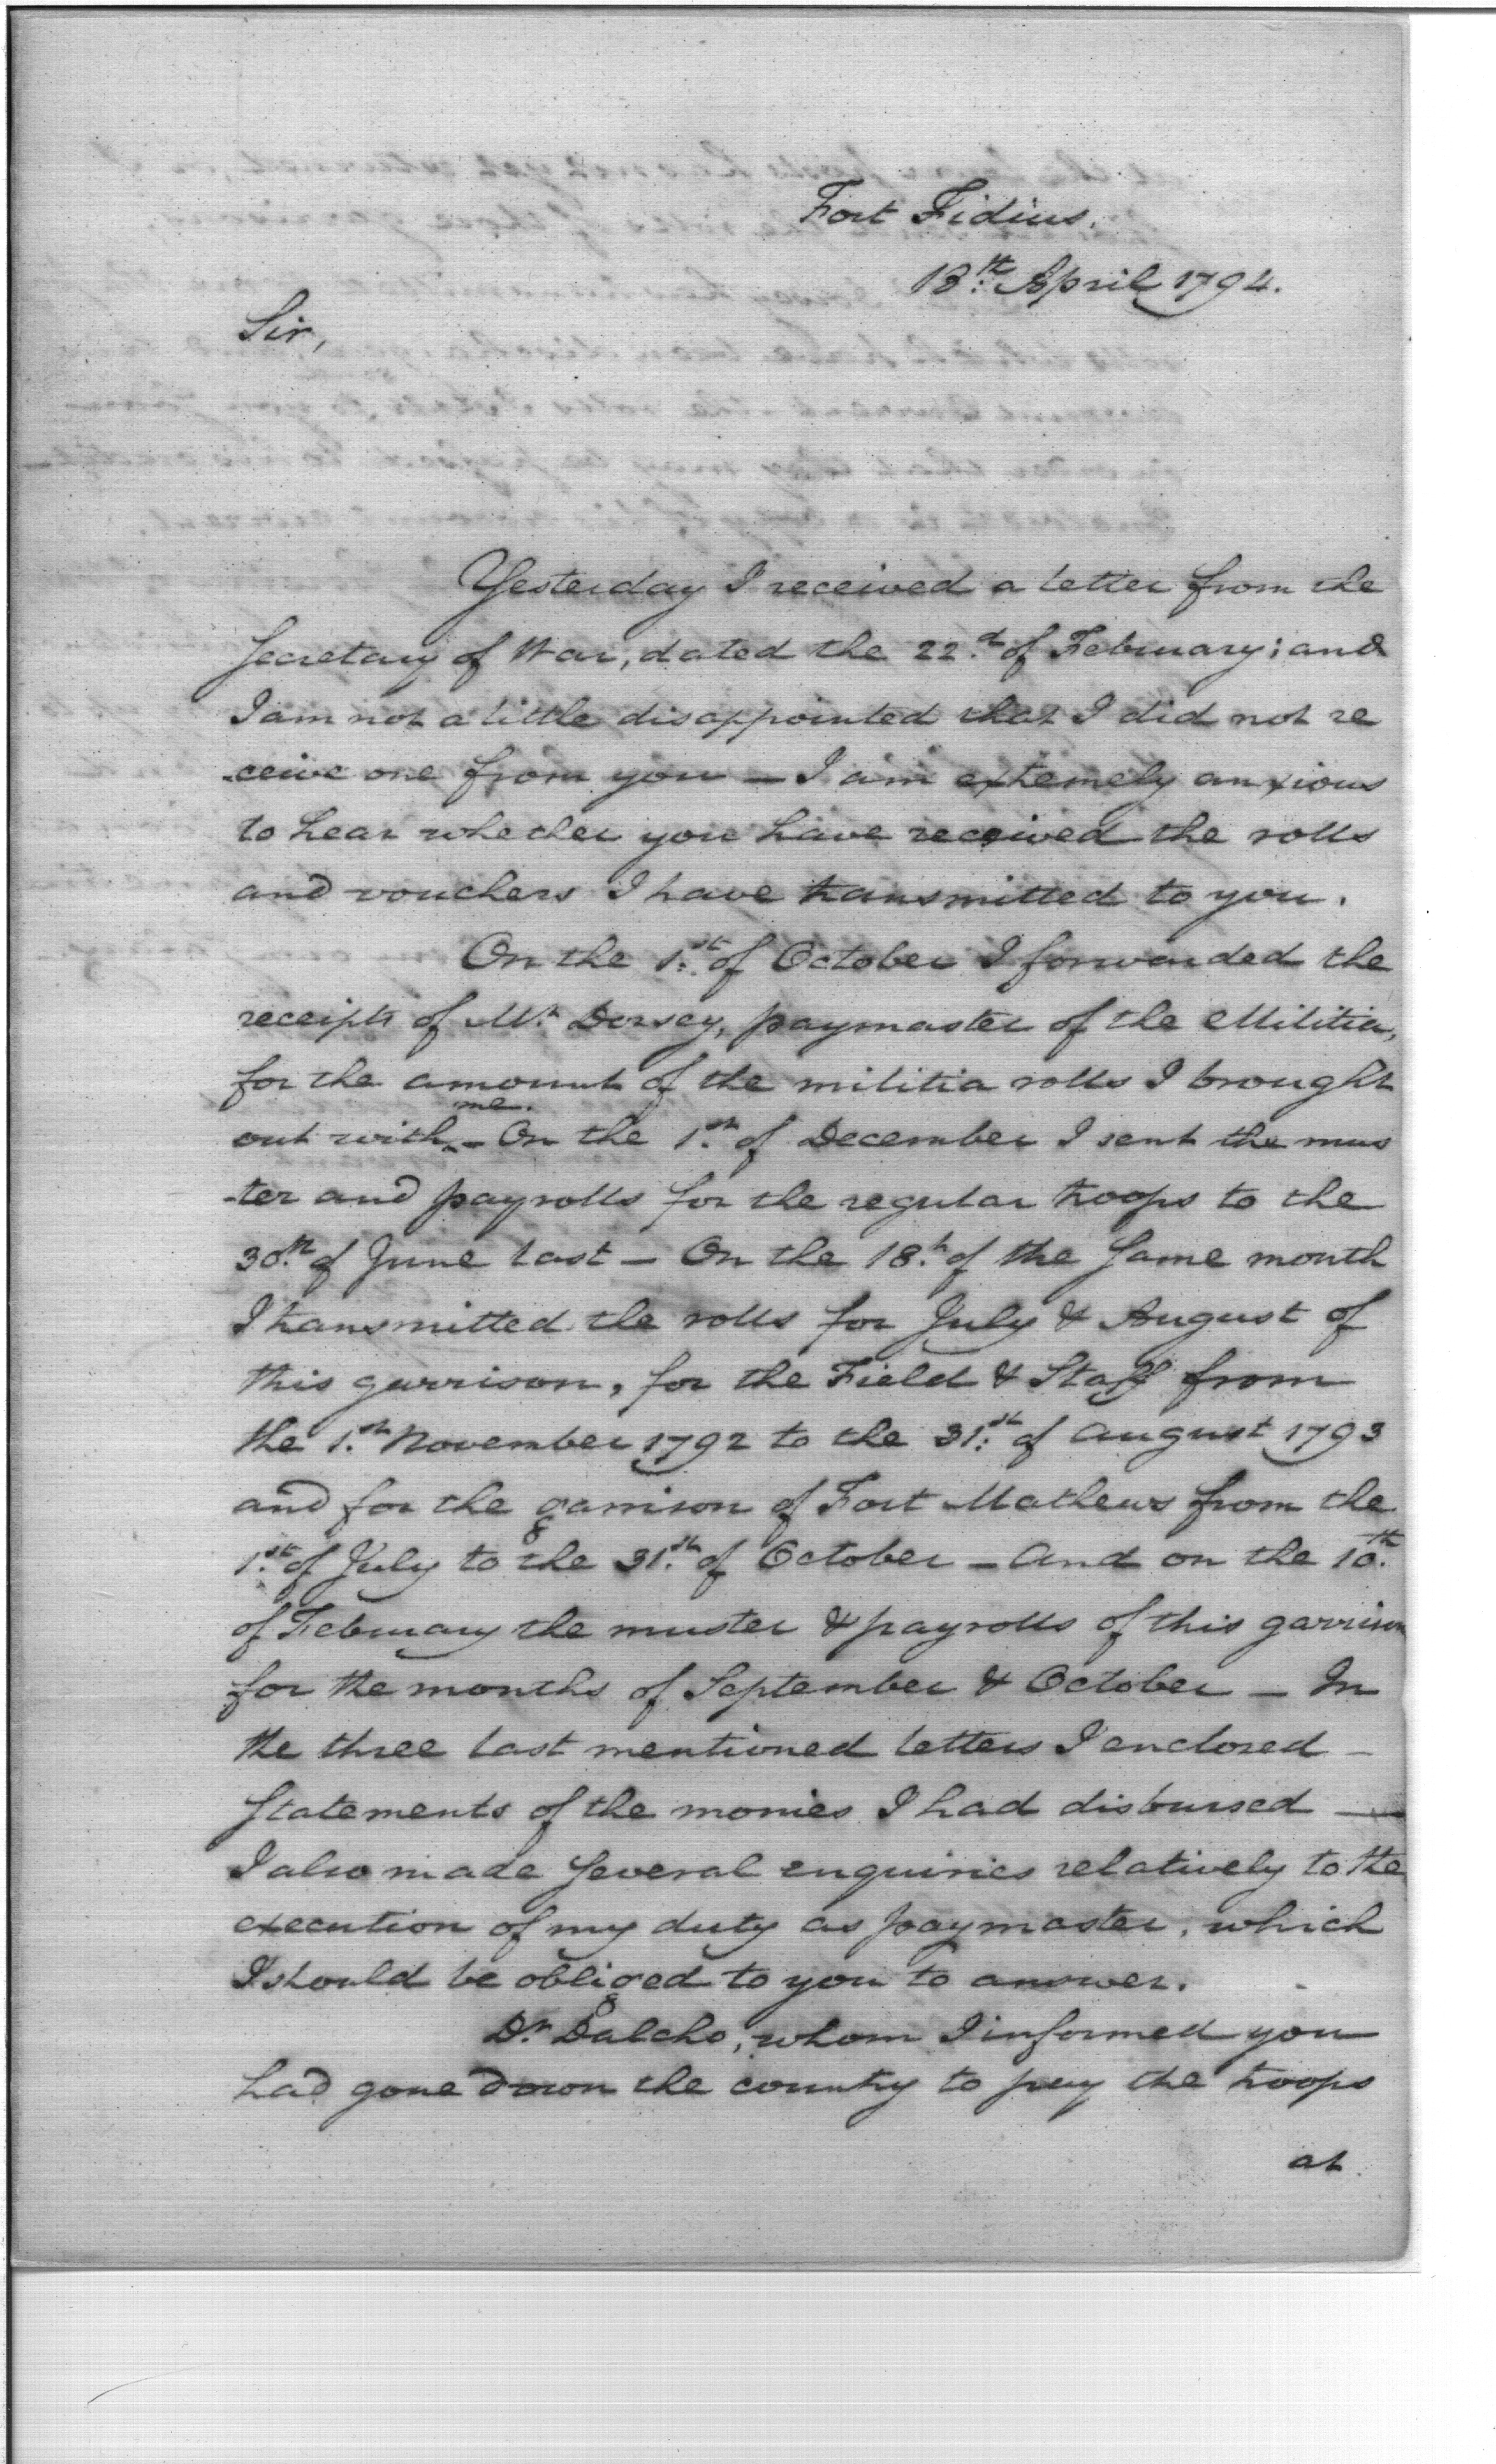 Fort Fidius.
18th. April 1794.
Sir,
Yesterday I received a letter from the
Secretary of War, dated the 22.d of February; and
I am not a little disappointed that I did not re
-ceive one from you — I am extremely anxious
to hear whether you have received the rolls
and vouchers I have transmitted to you.
On the 1.st of October I forwarded the
receipts of Mr. Dorsey, paymaster of the Militia,
for the amount of the militia rolls I brought
out with me. - On the 1.st of December I sent the mus
-ter and payrolls for the regular troops to the
30.th of June last — On the 18.th of the same month
I transmitted the rolls for July & August of
this garrison, for the Field & Staff from
the 1.st November 1792 to the 31.st of August 1793
and for the garrison of Fort Mathews from the
1.st of July to the 31.st of October — And on the 10.th
of February the muster & payrolls of this garrison
for the months of September & October — In
the three last mentioned letters I enclosed —
statements of the monies I had disbursed —
I also made several enquiries relatively to the
execution of my duty as paymaster, which
I should be obliged to you to answer.
Dr Dalcho, whom I informed you
had gone down the country to pay the troops
at